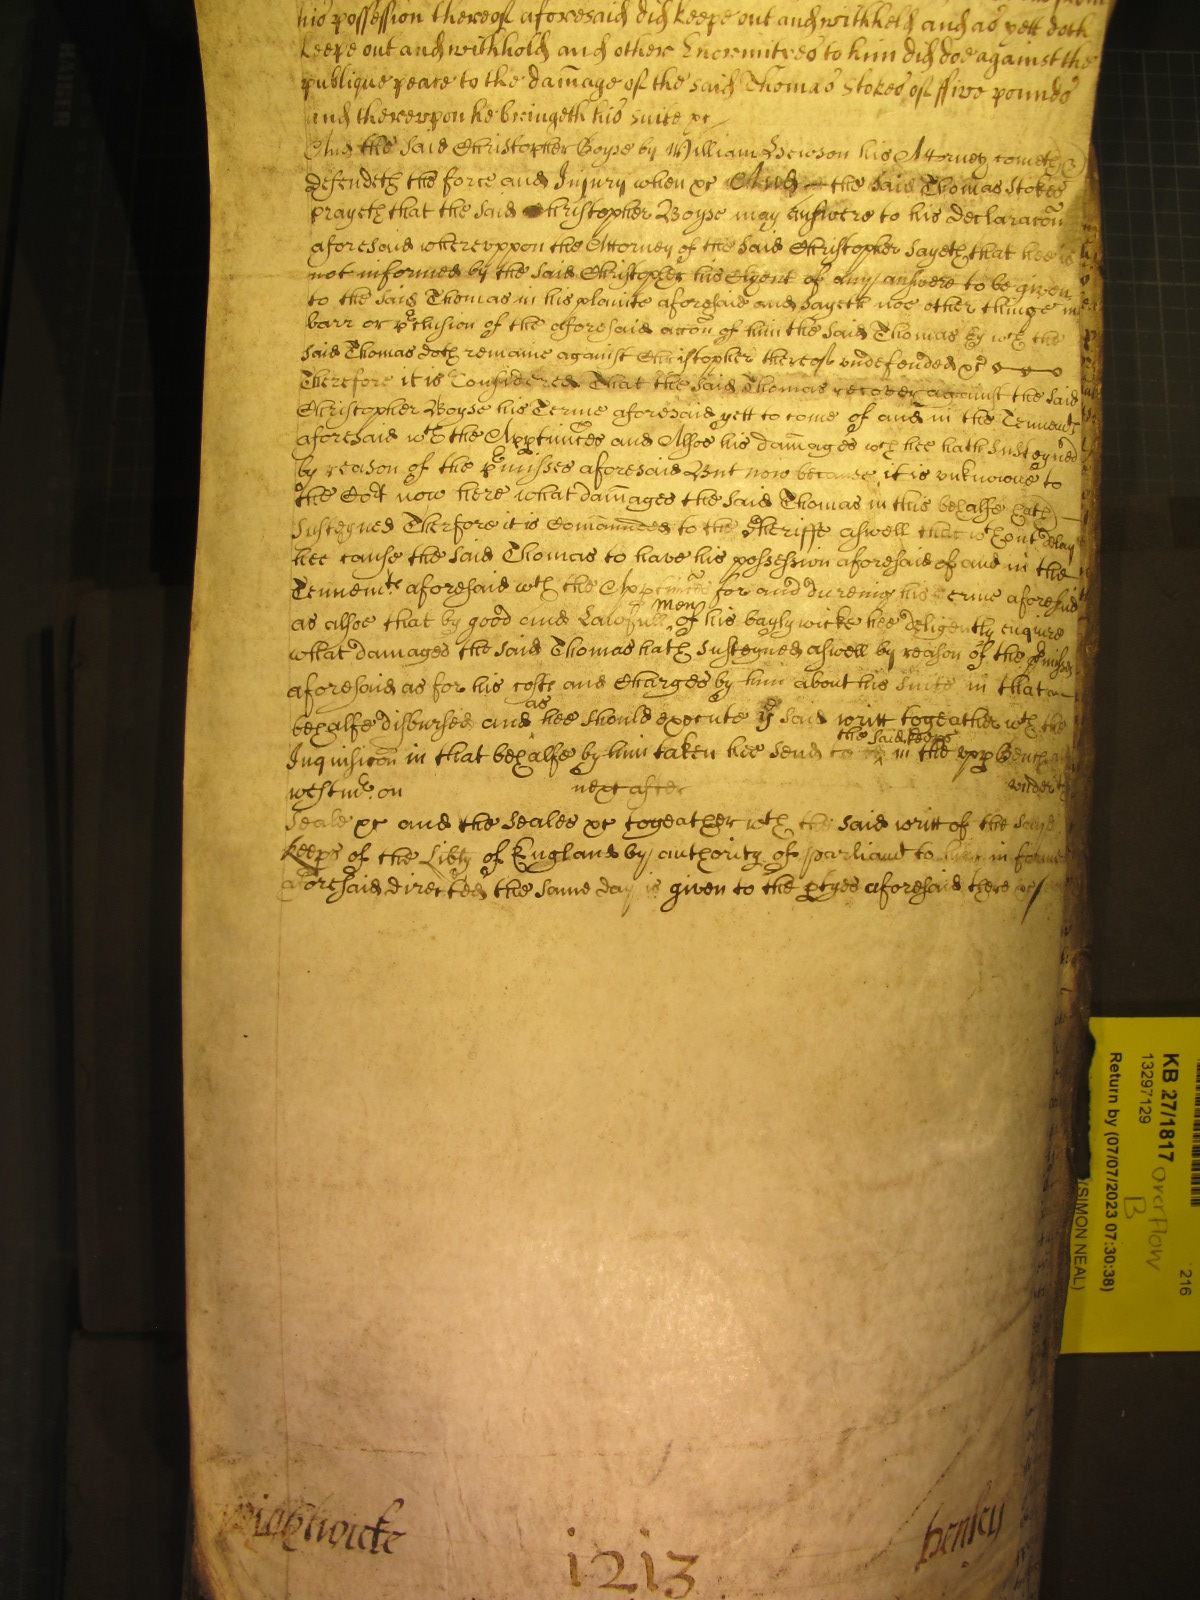 his possession thereof aforesaid did keepe out and withheld and as yett doth
keepe out and withhold and other Enormityes to him did doe against the
publique peace to the damage of the said Thomas Stokes of ffive pounds
and therevpon he bringeth his suite &c
And the said Christopher Boyse by William Hewson his Attorney cometh &
defendeth the force and Injury when &c And the said Thomas Stokes
prayeth that the said Christopher Boyse may answere to his declaracōn
aforesaid wherevppon the Attorney of the said Christopher sayeth that hee is
not informed by the said Christopher his Clyent of any answere to be given
to the said Thomas in his plainte aforesaid and sayeth noe other thinge in
barr or p'clusion of the aforesaid accōn of him the said Thomas by wch the
said Thomas doth remaine against Christopher thereof vndefended &c
Therefore it is Considered That the said Thomas recover against the said
Christopher Boyse his Terme aforesaid yett to come of and in the Tenemts
aforesaid wth the Apptin̄ces and Alsoe his dam̄ages wch hee hath Susteyned
by reason of the p'misses aforesaid But now because it is unknowne to
the Cort now here what dam̄ages the said Thomas in this behalfe hath
Susteyned Therfore it is Com̄anded to the Sheriffe aswell that wthout delay
hee cause the said Thomas to have his possession aforesaid of and in the
Tennemts aforesaid wth the App for and dureing his Terme aforesaid
men
as alsoe that by good and Lawfull of his baylywicke hee deligently enquire
what damages the said Thomas hath Susteyned aswell by reason of the p'misses
aforesaid as for his costs and Charges by him about his Suite in that
as
behalfe disbursed and hee should execute ye said writt togeather wth the
the said keeps
Inquisicōn in that behalfe by him taken hee send to in the vpp Bench at
westmr on next after vnder the
Seale &c and the Seales &c togeather wth the said writt of the said
keeps of the Libty of England by authority of parliamt to him in forme
aforesaid directed the same day is given to the ptyes aforesaid there &c
Wightwicke
1213
henley
KB 27/1817
13297129
Return by (07/07/2023 07:30:38)
(SIMON NEAL)
216
overflow
B